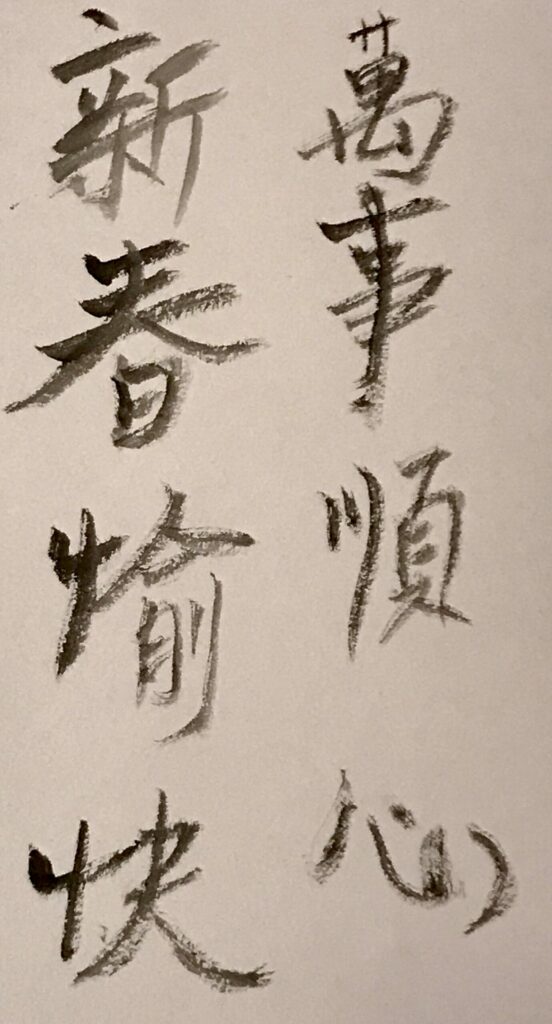 萬事順心
新春愉快